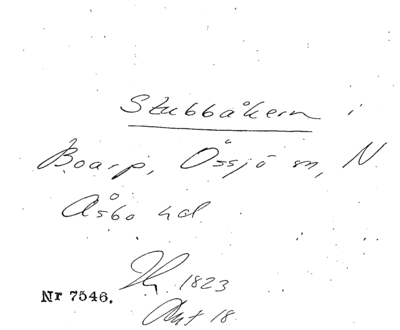 Stubbåkern i
Boarp, Össjö sn, N
Åsbo hd
1823
Nr 7546. Akt 18